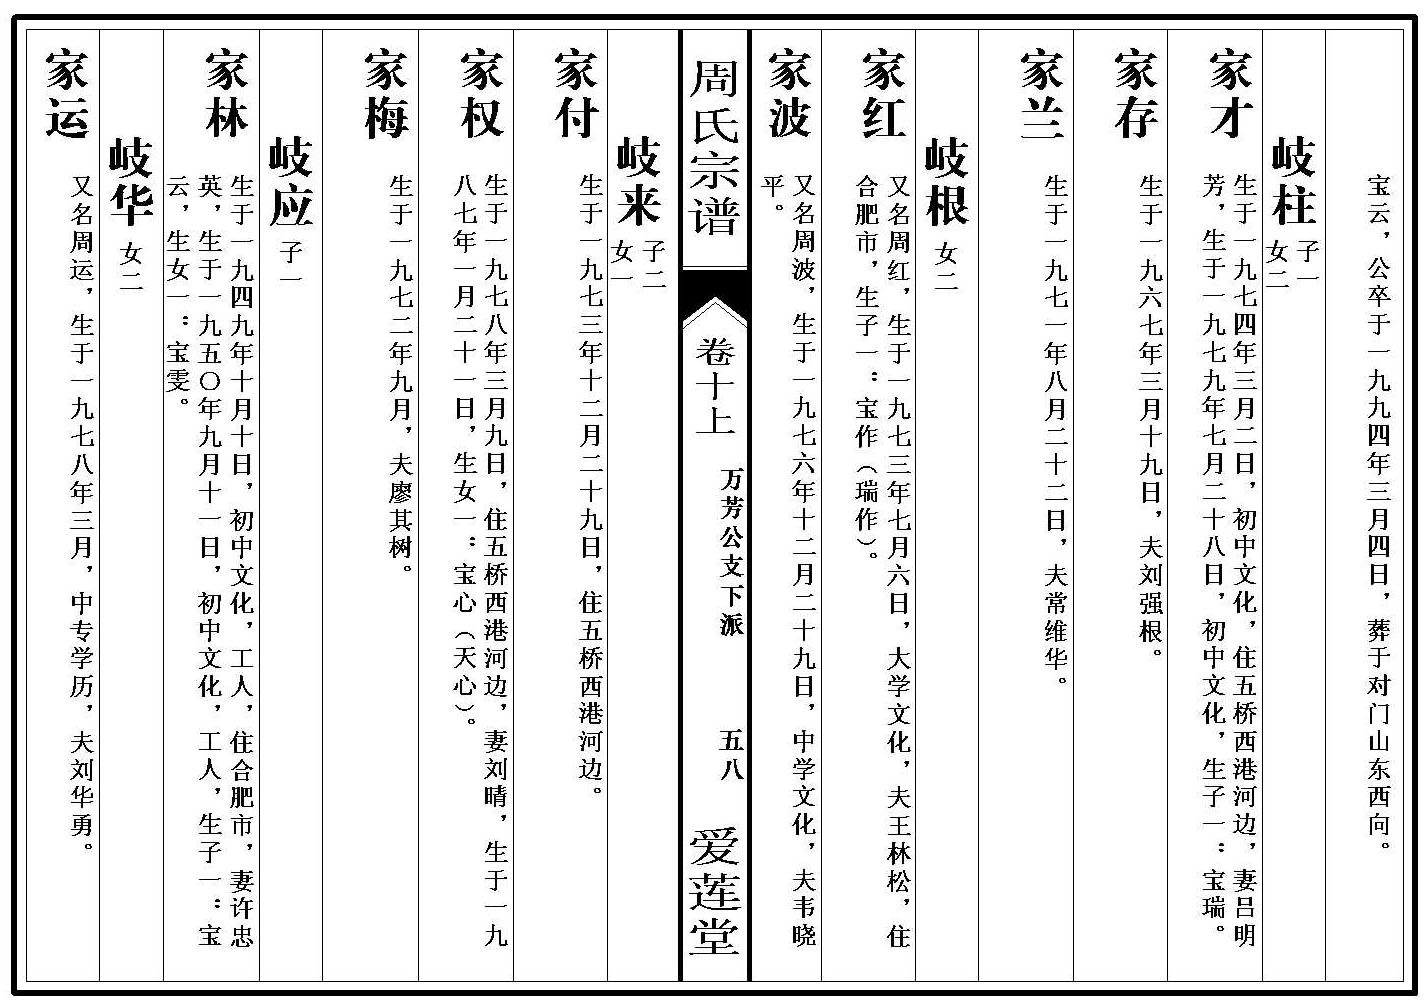 宝云，公卒于一九九四年三月四日，葬于对门山东西向。
岐柱
子一
女二
家才
生于一九七四年三月二日，初中文化，住五桥西港河边，妻吕明
芳，生于一九七九年七月二十八日，初中文化，生子一：宝瑞。
家存
生于一九六七年三月十九日，夫刘强根。
家兰
生于一九七一年八月二十二日，夫常维华。
岐根
女二
家红
又名周红，生于一九七三年七月六日，大学文化，夫王林松，住
合肥市，生子一：宝作（瑞作）。
家波
又名周波，生于一九七六年十二月二十九日，中学文化，夫韦晓
平。
周氏宗谱
卷十上
万芳公支下派
五八
爱莲堂
岐来
子二
女一
家付
生于一九七三年十二月二十九日，住五桥西港河边。
家权
生于一九七八年三月九日，住五桥西港河边，妻刘晴，生于一九
八七年一月二十一日，生女一：宝心（天心）。
家梅
生于一九七二年九月，夫廖其树。
岐应
子一
家林
生于一九四九年十月十日，初中文化，工人，住合肥市，妻许忠
英，生于一九五〇年九月十一日，初中文化，工人，生子一：宝
云，生女一：宝雯。
岐华
女二
家运
又名周运，生于一九七八年三月，中专学历，夫刘华勇。